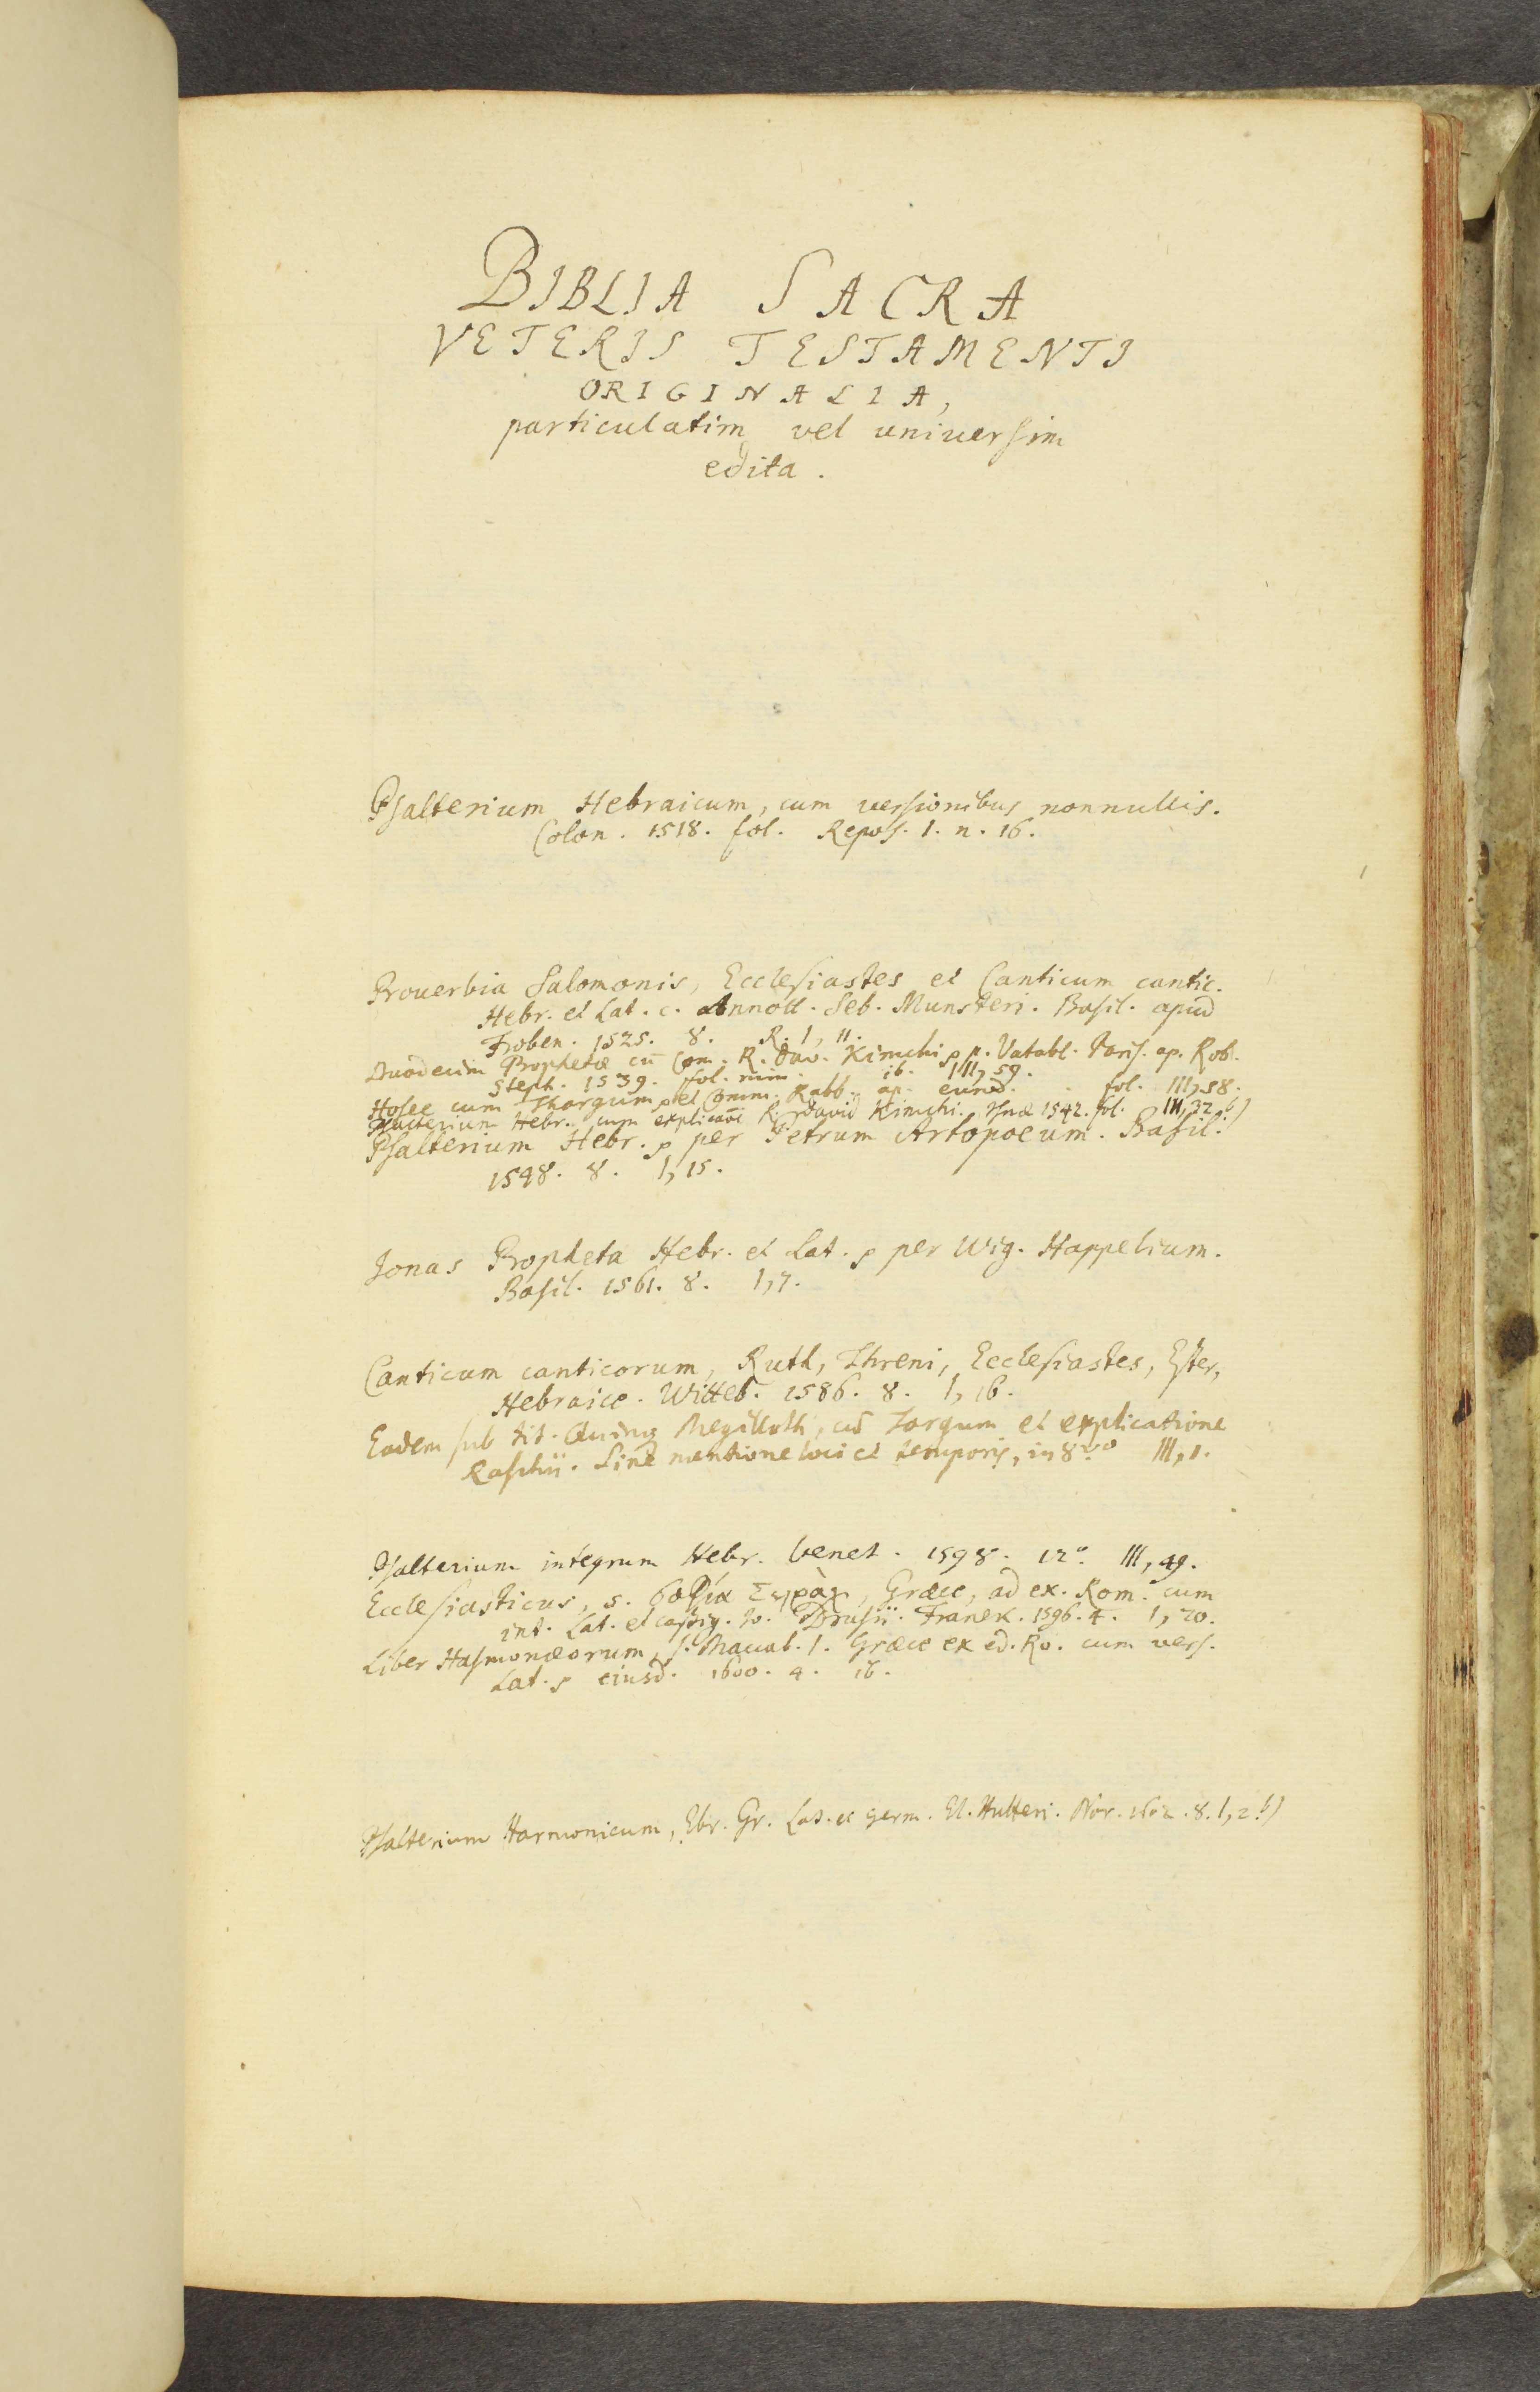 BIBLIA SACRA
VETERIS TESTAMENTI
ORIGINALIA,
particulatim vel universim
edita.
Psalterium Hebraicum, cum versionibus nonnullis.
Colon. 1518. fol. Repos. 1. n. 16.
Prouerbia Salomonis, Ecclesiastes et Canticum cantic.
Hebr. et Lat. c. Annott. Seb. Munsteri. Basil. apud
Froben. 1525. 8. R. 1, 11.
Duodecim Prophetæ cū Com. R. Dav. Kimchi p. Vatabl. Paris. ap. Rob.
Steph. 1539. fol. min. ib. III, 59.
Hosee cum Thargum et Comm. Rabb. ap. eund. fol. III, 58.
Psalterium Hebr. cum R. David Kimchi. 1542. fol. III, 32.
Psalterium Hebr. per Petrum Artopoeum. Basil.
1548. 8. 1, 15.
Jonas Propheta Hebr. et Lat. per Wig. Happelium.
Basil. 1561. 8. 1, 7.
Canticum canticorum, Ruth, Threni, Ecclesiastes, Ester,
Hebraice. Witteb. 1586. 8. 1, 16.
Eadem sub tit. Quinq Megilloth, cū Targum et explicatione
Raschii. Sine mentione loci et temporis, in 8vo III, 1.
Psalterium integrum Hebr. Venet. 1598. 12° III, 49.
Ecclesiasticus, s. σοφία Σιρὰχ, Græce, ad ex. Rom. cum
int. Lat. et castig. Jo. Drusii. Franek. 1596. 4. 1, 20.
Liber Hasmonæorum, s. Maccab. 1. Græce ex ed. Ro. cum vers.
Lat. eiusd. 1600. 4. ib.
Psalterium Harmonicum, Ebr. Gr. Lat. et germ. El. Hutteri. Nor. 1602. 8. 1, 2